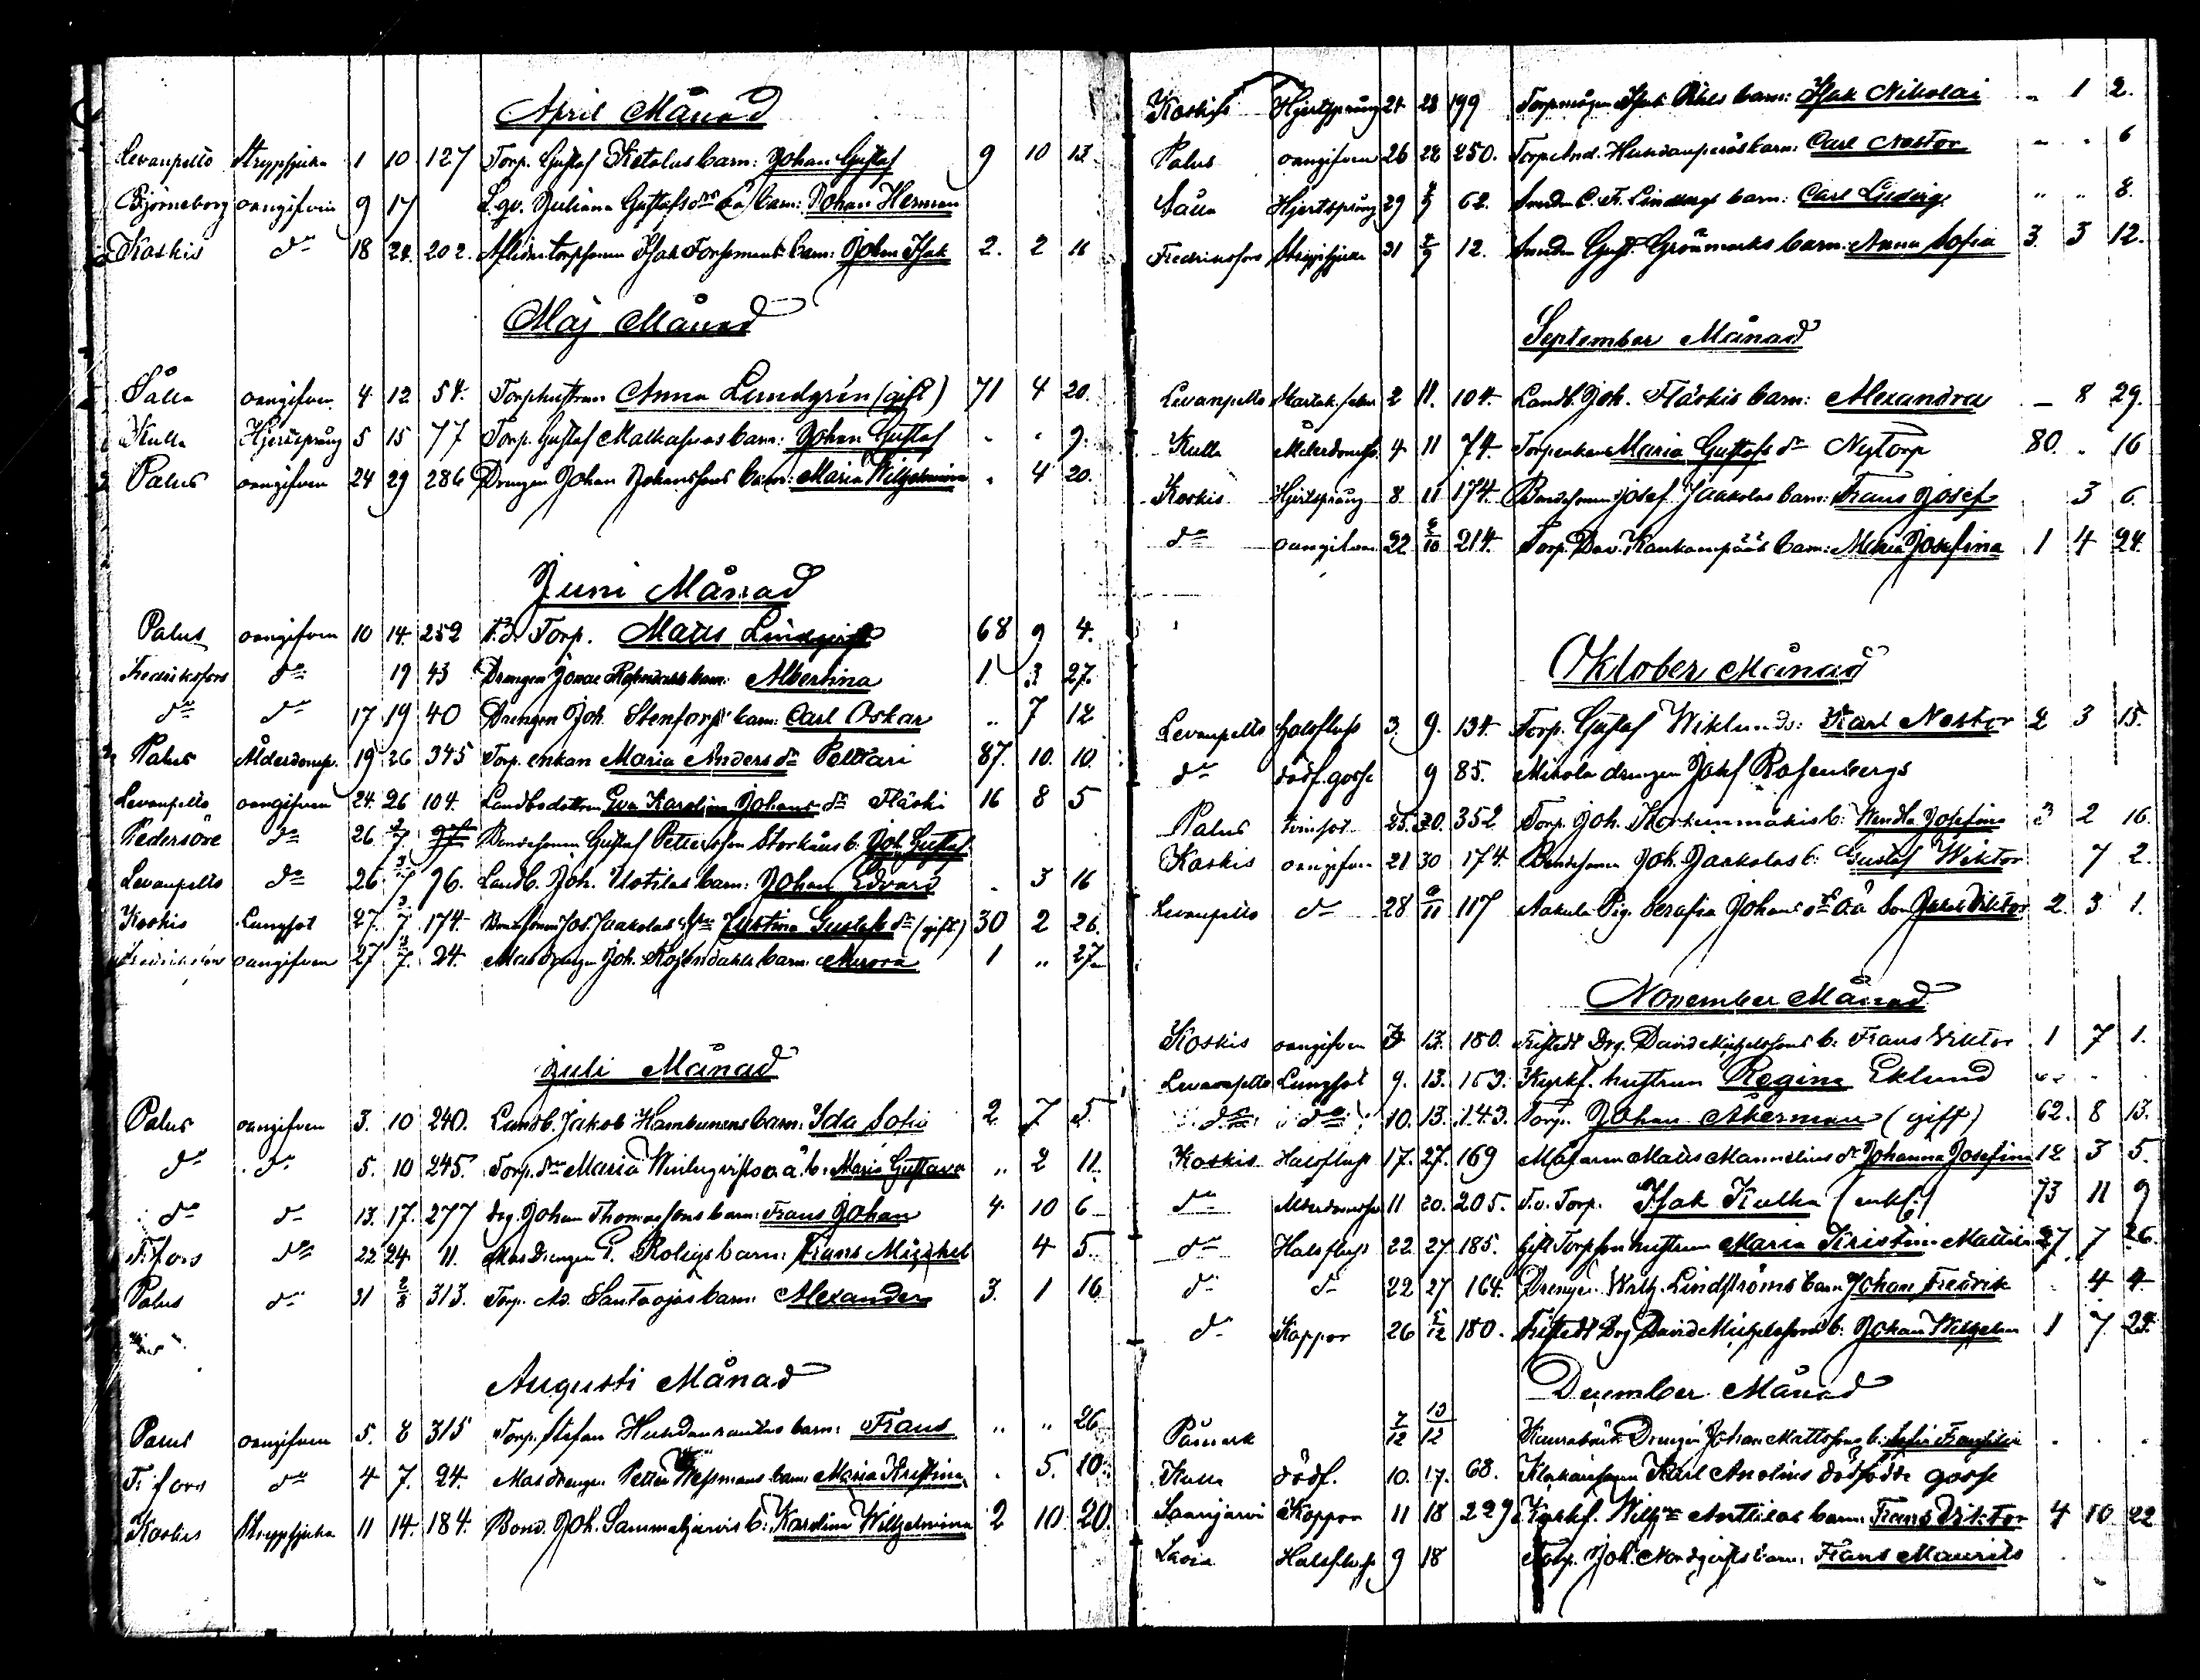 April Månad
Levanpelto Strypsjuka 1 10 127 Torp. Gustaf Ketolas barn: Johan Gustaf 9 10 13
Björneborg oangifven 9 17 L.gv. Juliana Gustafsdr oä barn: Johan Herman
Koskis do 18 24 202. Afliden torparen Isak Forssmans barn: Johan Isak 2. 2 16
Maj Månad
Sålla oangifven 4 12 54. Torphustrun Anna Lundgrén (gift) 71 4 20.
Kulla Hjertsprång 5 15 77 Torp. Gustaf Malkasuos barn: Johan Gustaf - - 9.
Palus oangifven 24 29 286 Drengen Johan Johanssons barn: Maria Wilhelmina - 4 20.
Juni Månad
Palus oangifven 10 14 252 Torp. Matts Lindqvist 68 9 4.
Fredriksfors do 19 43 Drengen Jonas barn: Albertina 1 3 27.
do do 17 19 40 Drengen Joh. Stenfors barn: Carl Oskar .. 7 12
Palus Ålderdomsv. 19 26 345 Torp. enkan Maria Anders dr Peltari 87. 10. 10.
Levanpelto oangifven 24 26 104. Landbodottren Eva Karolina Johans dr Fläski 16 8 5
Pedersöre do 26 2/7 Bondesonen Gustaf Pettersson Storhäus b. Joh. Gustaf
Levanpelto do 26 3/7 96. Landb. Joh. Uotilas barn: Johan Edvard - 3 16
Koskis Lungsot 27. 3/7 174. Bondesonen Jos. Jaakolas Justina Gustafs dr (gift) 30 2 26.
Fredriksfors oangifven 27 3/7 24. Masdrengen Joh. Rosendahls barn: Aurora 1 .. 27
Juli Månad
Palus oangifven 3. 10 240. Landb. Jakob Hambunens barn: Ida Sofia 2 7 5
do do 5. 10 245. Torp. dr Maria Winqvists o.ä. b. Maria Gustava .. 2 11.
do do 13. 17. 277 drg. Johan Thomassons barn: Frans Johan 4. 10 6
F.fors do 22 24 11. Masdrengen P. Roligs barn: Frans Mickel 4 5
Palus do 31 2/8 313. Torp. Ad. Santaojas barn: Alexander 3. 1 16
Augusti Månad
Palus oangifven 5. 8 315 Torp. Stefan barn: Frans .. .. 26
F.fors do 4 7. 24. Masdrengen Petter Wessmans barn: Maria Kristina . 5. 10.
Koskis Strypsjuka 11 14. 184. Bond. Joh. Sammaljärvis b: Karolina Wilhelmina 2 10 20.
Koskis Hjertsprång 24 28 199 Isak barn: Isak Nikolai - 1 2.
Palus oangifven 26 28 250. Torp. And. barn: Carl Nestor - - 6
Sålla Hjertsprång 29 62. Smeden C. F. Lindbergs barn: Carl Ludvig .. .. 8.
Fredriksfors Strypsjuka 31 12. Smeden Gust. Grönmarks barn: Anna Sofia 3. 3 12.
September Månad
Levanpelto 2 11. 104. Landb. Joh. Fläskis barn: Alexandra - 8 29.
Kulla Ålderdomsv. 4 11 74. Torpenkan Maria Gustafs dr Nytorp 80. . 16
Koskis Hjertsprång 8 11 174. Bondesonen Josef Jaakolas barn: Frans Josef 3 6.
do oangifven 22 2/10 214. Torp. Dav. Kankaanpääs barn: Maria Josefina 1 4 24.
Oktober Månad
Levanpelto Halsfluss 3. 9. 134. Torp. Gustaf Wiklunds: Karl Nestor 2 3 15.
do dödf. gosse 9 85. Mikola drengen Josef Rosenbergs
Palus 25. 30. 352 Torp. Joh. b: Wendla Josefina 3 2 16.
Koskis oangifven 21 30 174. Bondesonen Joh. Jaakolas b: Gustaf Wiktor 7 2.
Levanpelto do 28 117 Aakula Pig. Serafia Johans dr o.ä. son Jakob Viktor 2. 3 1.
November Månad
Koskis oangifven 13. 180. Fristedt Drg. David Mickelssons b. Frans Viktor 1 7 1.
Levanpelto Lungsot 9. 13. 153. Kyrkf. hustrun Regina Eklund
do do 10. 13. 143. Torp. Johan Åkerman (gift) 62. 8 13.
Koskis Halsfluss 17. 27. 169 Majoren Matts Mannelius dr Johanna Josefina 12 3 5.
do Ålderdomssv. 11 20. 205. F.v. Torp. Isak Kulla (enkl.) 73 11 9
do Halsfluss 22. 27 185. Gift Torpson hustrun Maria Kristina Mattila 27 7 26.
do do 22 27 164. Drengen Wilh. Lindströms barn Johan Fredrik . 4 4.
do Koppor 26 5/12 180. Fristedt Drg David Mickelssons b: Johan Wilhelm 1 7 24.
December Månad
Påmark 7/12 13/12 Drengen Johan Mattssons b: Sofia
Kulla dödf. 10. 17. 68. Karl Anolins dödfödde gosse
Laanijärvi Koppor 11 18 229 Kyrkf. Wilh. Anttilas barn: Frans Viktor 4 10 22
Lavia Halsfluss 9 18 Torp. Joh. Nordqvists barn: Frans Maurits